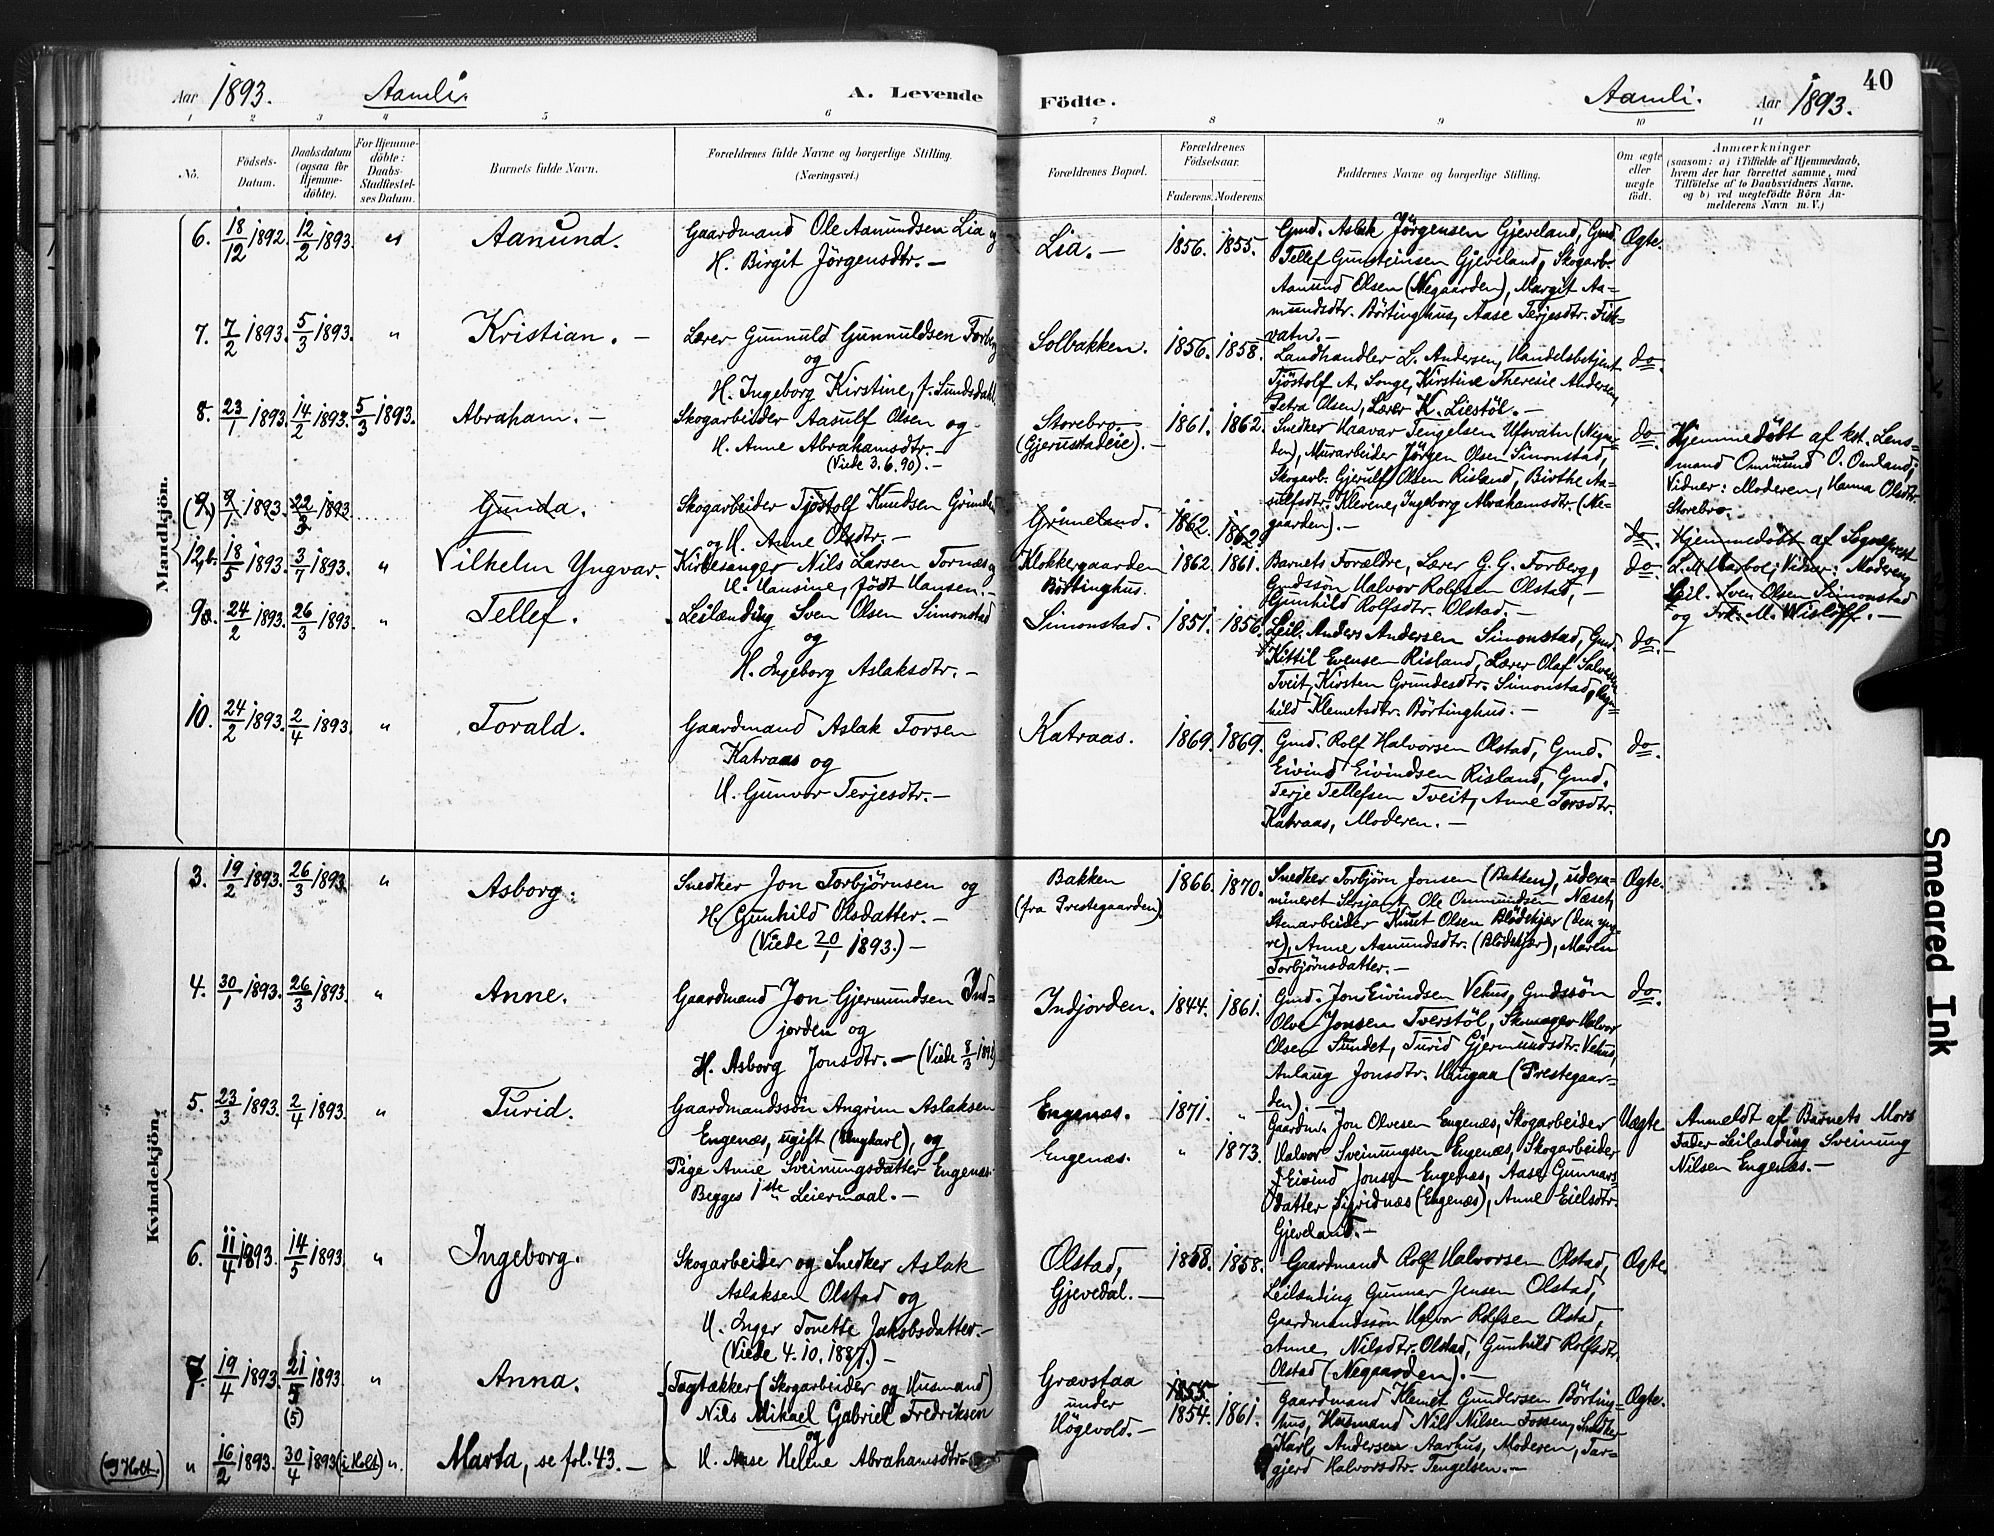 Aar 1893. Aamli. A. Levende
Födte. Aamli. Aar 1893. 40
1 2 3 4 5 6 7 8 9 10 11
No.
Födsels-
Datum.
Daabsdatum
(ogsaa for
Hjemme-
döbte).
For Hjemme-
döbte:
Daabs-
Stadfæstel-
ses Datum.
Barnets fulde Navn.
Forældrenes fulde Navne og borgerlige Stilling.
(Næringsvei.)
Forældrenes Bopæl.
Forældrenes
Födselsaar.
Faderens. Moderens.
Faddernes Navne og borgerlige Stilling.
Om ægte
eller
uægte
födt.
Anmærkninger
(saasom: a) i Tilfælde af Hjemmedaab,
hvem der har forrettet samme, med
Tilföielse af to Daabsvidners Navne,
og b) ved uægtefödte Börn An-
melderens Navn m. V.)
Mandkjön.
6. 18/12 1892. 12/2 1893. " Aanund.
Gaardmand Ole Aanundsen Lia og
H. Birgit Jörgensdtr. —
Lia. — 1856. 1855.
Gmd. Aslak Jörgensen Gjeveland, Gmd.
Tellef Gunsteinsen Gjeveland, Skogarb.
Aanund Olsen (Negaarden), Margit Aa-
mundsdtr. Börtinghus, Aase Terjesdtr. Fisk-
vatn. —
Ægte.
7. 7/2 1893. 5/3 1893. " Kristian. —
Lærer Gunnuld Gunnuldsen Forberg
og
H. Ingeborg Kirstine, f. Sundsdahl.
Solbakken. 1856. 1858.
Landhandler L. Andersen, Handelsbetjent
Tjöstolf A. Songe, Kirstine Theresie Andersen,
Petra Olsen, Lærer K. Liestöl. —
do.
8. 23/1 1893. 14/2 1893. 5/3 1893. Abraham. —
Skogarbeider Aasulf Olsen og
H. Anne Abrahamsdtr. —
(Viede 3.6.90). —
Storebro
(Gjerustadeie). — 1861. 1862.
Snedker Haavar Tengelsen Ufsvatn (Negaar-
den), Murarbeider Jörgen Olsen Simonstad,
Skogarb. Gjerulf Olsen Risland, Birthe Aa-
sulfsdtr. Klevene, Ingeborg Abrahamsdtr. (Ne-
gaarden). —
do.
Hjemmedöbt af kst. Lens-
mand Omund O. Omland;
Vidner: Moderen, Hanna Olsdtr.
Storebro.
(9.) 9/1 1893. 22/3 1893. Gunda.
Skogarbeider Tjöstolf Knudsen Grimeland
og H. Anne Olsdtr. —
Grimeland. 1862. 1862.
do.
Hjemmedöbt af Sogneprest
L. M. Harboe; Vidner: Moderen,
Leil. Sven Olsen Simonstad
og Frk. M. Wisløff. —
12,b. 18/5 1893. 3/7 1893. " Vilhelm Yngvar.
Kirkesanger Nils Larsen Tornæs og
H. Hansine, född Hansen. —
Klokkergaarden
Börtinghus. 1862. 1861.
Barnets Forældre, Lærer G. G. Forberg,
Gmdssön Halvor Rolfsen Olstad, —
Gunhild Rolfsdtr. Olstad. —
do.
9a. 24/2 1893. 26/3 1893. " Tellef.
Leilænding Sven Olsen Simonstad
og
H. Ingeborg Aslaksdtr. —
Simonstad. 1851. 1856.
Leil. Anders Andersen Simonstad, Gmd.
Kittil Evensen Risland, Lærer Olaf Salvesen
Tveit, Kirsten Grundesdtr. Simonstad, Gun-
hild Klemetsdtr. Börtinghus. —
do. —
10. 24/2 1893. 2/4 1893. " Torald.
Gaardmand Aslak Torsen
Katraas og
H. Gunvor Terjesdtr. —
Katraas. 1869. 1869.
Gmd. Rolf Halvorsen Olstad, Gmd.
Eivind Eivindsen Risland, Gmd.
Terje Tellefsen Tveit, Anne Torsdtr.
Katraas, Moderen. —
do.
Kvindekjön.
3. 19/2 1893. 26/3 1893. " Asborg.
Snedker Jon Torbjörnsen og
H. Gunhild Olsdatter. —
(Viede 20/1 1893.) —
Bakken
(fra Prestegaarden). 1866. 1870.
Snedker Torbjörn Jonsen (Bakken), udexa-
mineret Sersjant Ole Ommundsen Næset,
Stenarbeider Knut Olsen Blödekjær (den yng-
re), Anne Aanundsdtr. (Blödekjær), Maren
Torbjörnsdatter. —
Ægte.
4. 30/1 1893. 26/3 1893. " Anne.
Gaardmand Jon Gjermundsen Ind-
jorden og
H. Asborg Jonsdtr. — (Viede 8/3 1892)
Indjorden. 1844. 1861.
Gmd. Jon Eivindsen Vehus, Gmdssön
Olve Jonsen Tverstöl, Skomager Halvor
Olsen Sundet, Turid Gjermundsdtr. Vehus,
Anlaug Jonsdtr. Haugaa (Prestegaar-
den). —
do.
5. 23/3 1893. 2/4 1893. " Turid.
Gaardmandssön Angrim Aslaksen
Engenæs, ugift (Ungkarl), og
Pige Anne Sveinungsdatter Engenæs.
Begges 1ste Leiermaal. —
Engenæs. 1871. "
Engenæs. " 1873.
Gaardm. Jon Olvesen Engenæs, Skogarbeider
Halvor Sveinungsen Engenæs, Skogarbeider
Eivind Jonsen Engenæs, Aase Gunnars-
datter Sigridnæs (Engenæs), Anne Eielsdtr.
Gjeveland. —
Uægte.
Anmeldt af Barnets Mors
Fader Leilænding Sveinung
Nilsen Engenæs. —
6. 11/4 1893. 14/5 1893. " Ingeborg.
Skogarbeider og Snedker Aslak
Aslaksen Olstad og
H. Inger Tonette Jakobsdatter. —
(Viede 4.10.1887.) —
Olstad,
Gjevedal. — 1858. 1858.
Gaardmand Rolf Halvorsen Olstad,
Leilænding Gunnar Jensen Olstad,
Gaardmandssön Halvor Rolfsen Olstad,
Anne Nilsdtr. Olstad, Gunhild Rolfsdtr.
Olstad (Negaarden). —
Ægte.
7. 19/4 1893. 21/5 1893. (5) " Anna.
Tagtækker (Skogarbeider og Husmand)
Nils Mikael Gabriel Fredriksen
og
H. Aase Helene Abrahamsdtr.
Grævstaa
under
Högevold. — 1855 1854. 1861.
Gaardmand Klemet Gundersen Börting-
hus, Husmand Nils Nilsen Fossen, Snedker
Karl Andersen Aarhus, Moderen, Tar-
gjerd Halvorsdtr. Tengelsen. —
Ægte.
(I Holt.) " 16/2 1893. 30/4 1893 (i Holt) ". Marta, se fol. 43. —
Smeared Ink